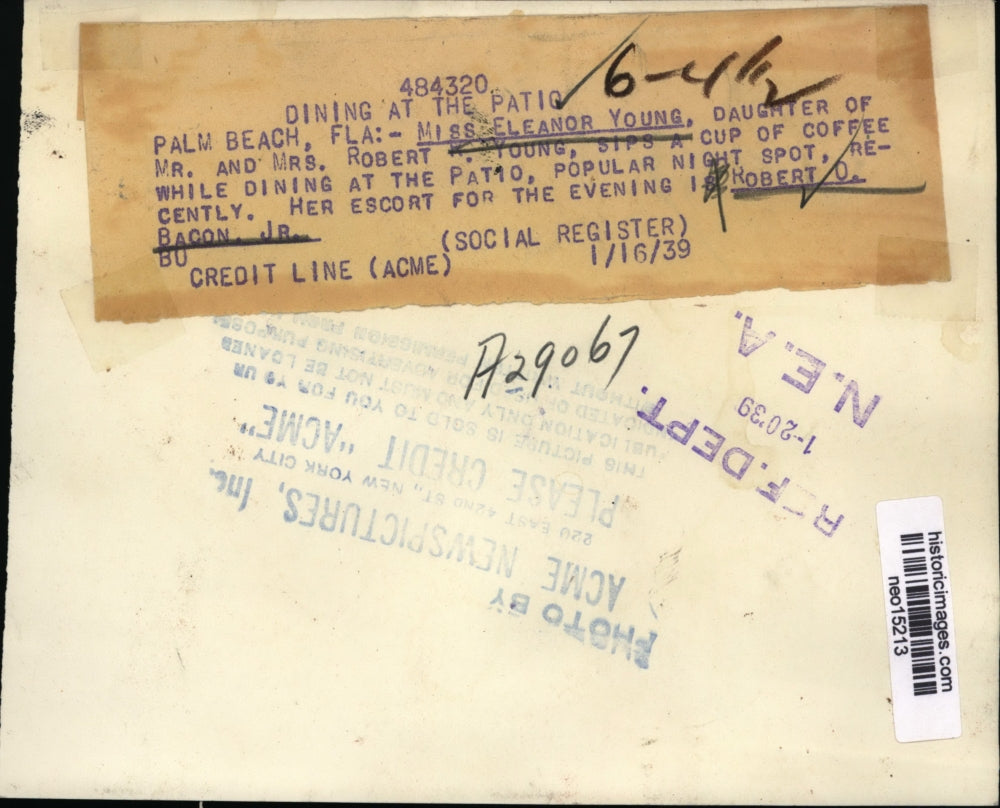 484320
6-4 1/2
DINING AT THE PATIO
PALM BEACH, FLA:- MISS ELEANOR YOUNG, DAUGHTER OF
MR. AND MRS. ROBERT R. YOUNG, SIPS A CUP OF COFFEE
WHILE DINING AT THE PATIO, POPULAR NIGHT SPOT, RE-
CENTLY. HER ESCORT FOR THE EVENING IS ROBERT O.
BACON, JR.
BU (SOCIAL REGISTER)
CREDIT LINE (ACME) 1/16/39
A29067
REF. DEPT.
1-20'39
N.E.A.
PHOTO BY
ACME NEWSPICTURES, Inc.
220 EAST 42ND ST., NEW YORK CITY
PLEASE CREDIT "ACME"
THIS PICTURE IS SOLD TO YOU FOR YOUR
PUBLICATION ONLY AND MUST NOT BE LOANED
PERMISSION FROM
historicimages.com
neo15213